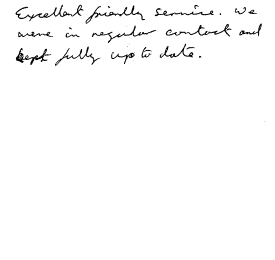 Excellent friendly service. We
were in regular contact and
kept fully up to date.